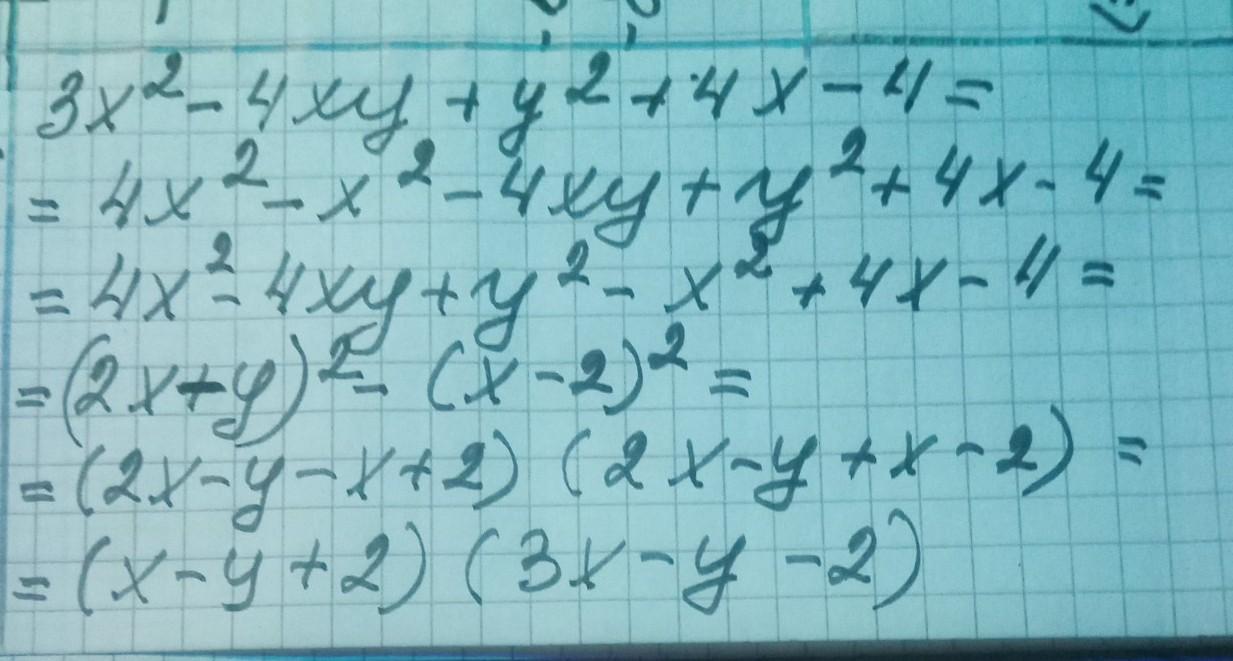 3x² - 4xy + y² + 4x - 4 =
= 4x² - x² - 4xy + y² + 4x - 4 =
= 4x² - 4xy + y² - x² + 4x - 4 =
= (2x - y)² - (x - 2)² =
= (2x - y - x + 2) (2x - y + x - 2) =
= (x - y + 2) (3x - y - 2)